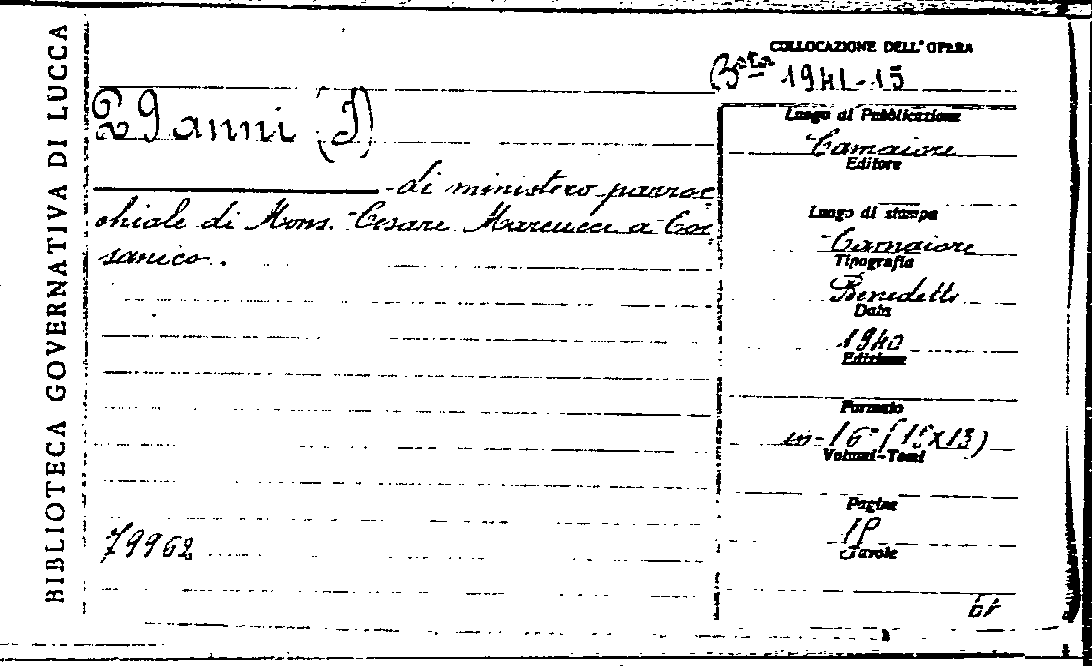 BIBLIOTECA GOVERNATIVA DI LUCCA
COLLOCAZIONE DELL'OPERA
Bsta 1941-15
29 anni (I)
di ministero parroc-
chiale di Mons. Cesare Marcucci a Cor-
sanico.
79962
Luogo di Pubblicazione
Camaiore
Editore
Luogo di stampa
Camaiore
Tipografia
Benedetti
Data
1940
Edizione
Formato
in-16° (19x13)
Volumi-Tomi
Pagine
Tavole